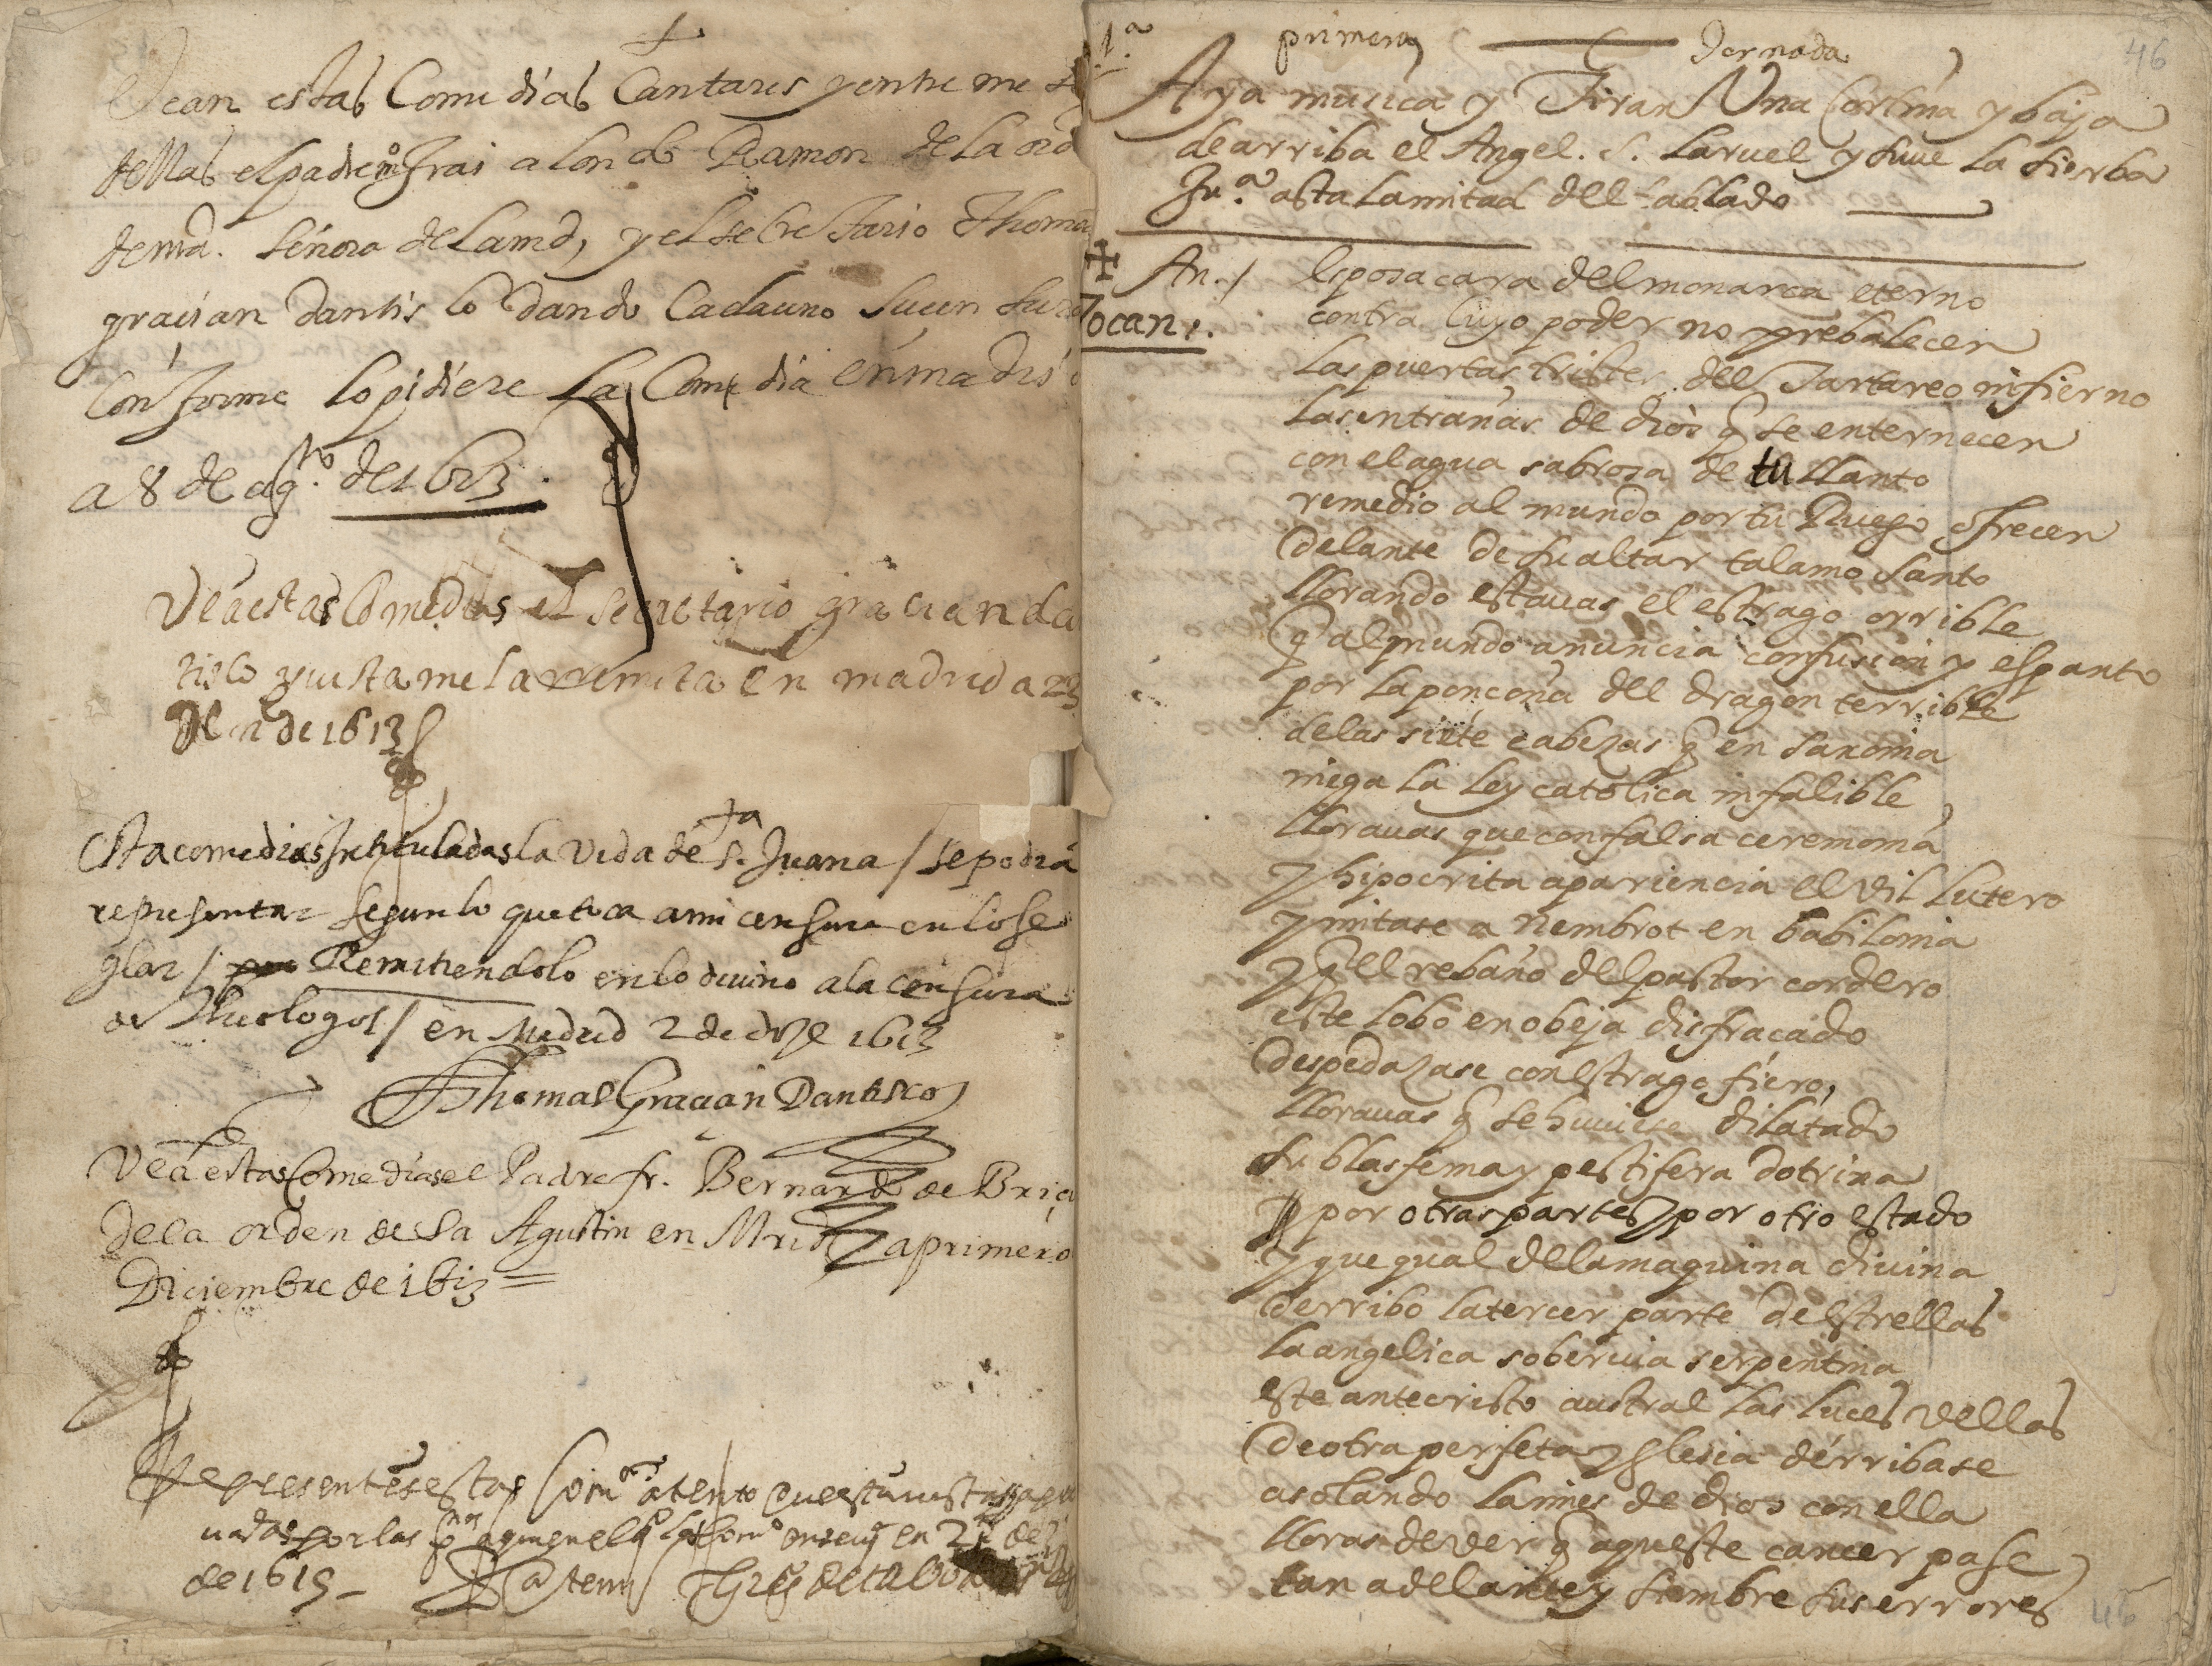 Vean estas Comedias Cantares y entreme
dellas el padre m.º frai alonso Ramon de la ord
de nrã. señora de la md, y el secretario Thoma
gracian dantis co dando Cada uno su cen sura
Conforme lo pidiere la Comedia en madrid
a 8 de agto. de 1613.
Vea estas Comedias el secretario gracian dan
tisco y vista me la rremita en madrid a 23
de 1613
Esta comedias Intituladas la Vida de Sta. Juana / se podra
representar segun lo que toca a mi censura en lo se
glar / Remitiendolo en lo divino a la censura
de Theologos / en Madrid 2 de 1613
Thomas Gracian Dantisco
Vea estas Comedias el Padre fr. Bernardo de Briç
de la orden de Sa Agustin en Mrid a primero
Diciembre de 1613 =
Representese estas Com.as atento que
de 1615 -
46
1.ª primera Jornada
Aya musica y Tiran Una Cortina y baja
de arriba el Angel. S. Laruel y suue la sierba
Ju.ª asta la mitad del tablado
An./ Esposa cara del monarca eterno
Tocan. contra Cuyo poder no prebalecen
las puertas tristes del Tartareo infierno
las entrañas de dios q̃ se enternecen
con el agua sabrosa de tu llanto
remedio al mundo por tu Ruego ofrecen
delante de su altar talamo santo
llorando estauas el estrago orrible
q̃ al mundo anuncia confusion y espanto
por la ponçoña del dragon terrible
de las siete cabezas q̃ en saxonia
niega la ley catolica infalible
llorauas que con falsa ceremonia
y hipocrita apariencia el vil lutero
ymitase a nembrot en babilonia
y q̃ el rebaño del pastor cordero
este lobo en obeja disfraçado
despedazase con estrago fiero,
llorauas q̃ se huuiese dilatado
su blasfema y pestifera dotrina
y por otras partes y por otro estado
y que qual de la maquina diuina
derribo la tercer parte de estrellas
la angelica soberuia serpentina
este antecristo austral las luces vellas
de otra perfeta yglesia derribase
asolando la mies de dios con ella
lloras de ver q̃ aqueste cancer pase
tan adelante y siembre sus errores
46